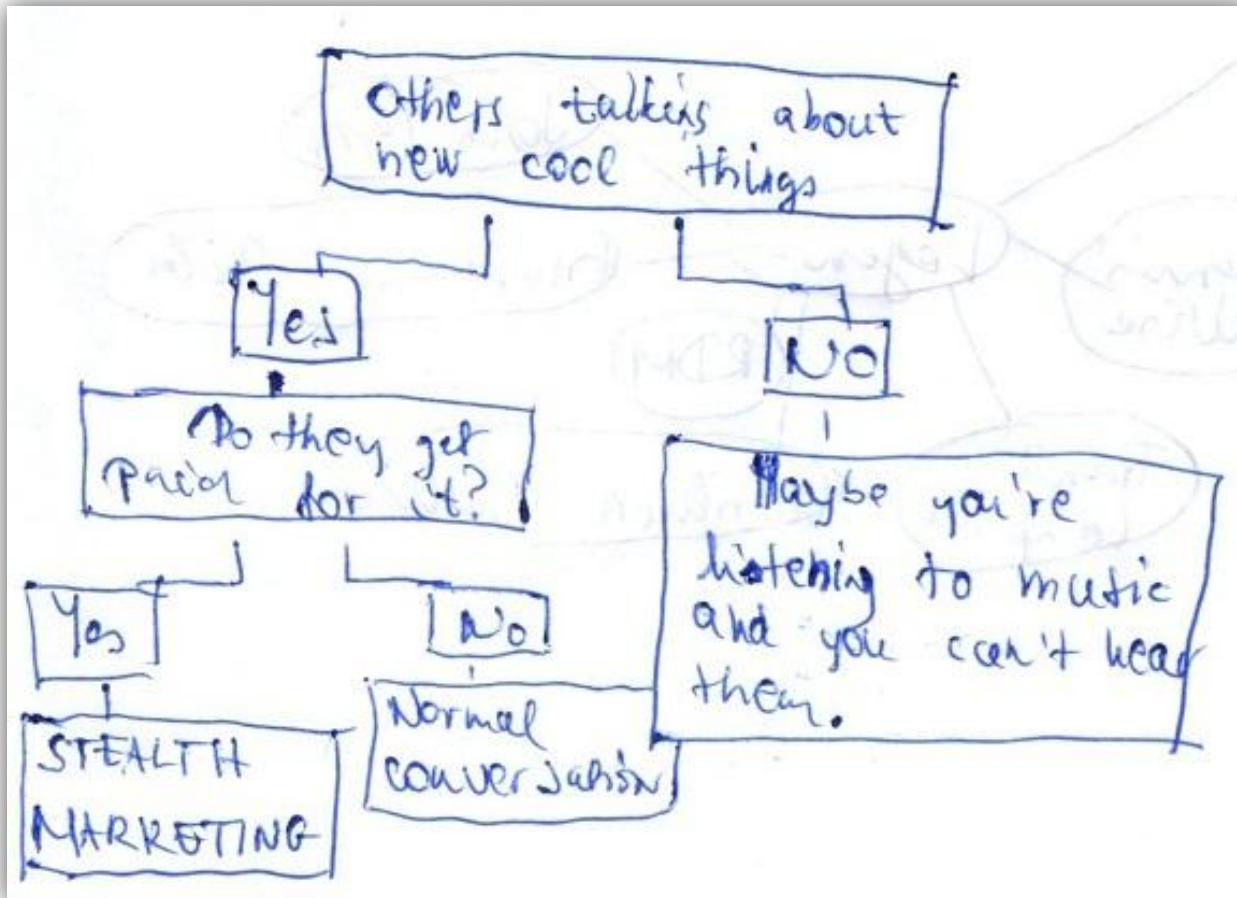 Others talking about
new cool things
Yes
No
Do they get
paid for it?
Maybe you're
listening to music
and you can't hear
them.
Yes
No
STEALTH
MARKETING
Normal
conversation